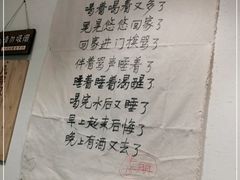 喝着喝着又多了
晃晃悠悠回家了
回家进门挨骂了
伴着骂声睡着了
睡着睡着渴醒了
喝完水后又睡了
早上起来后悔了
晚上有酒又去了
请勿吸烟